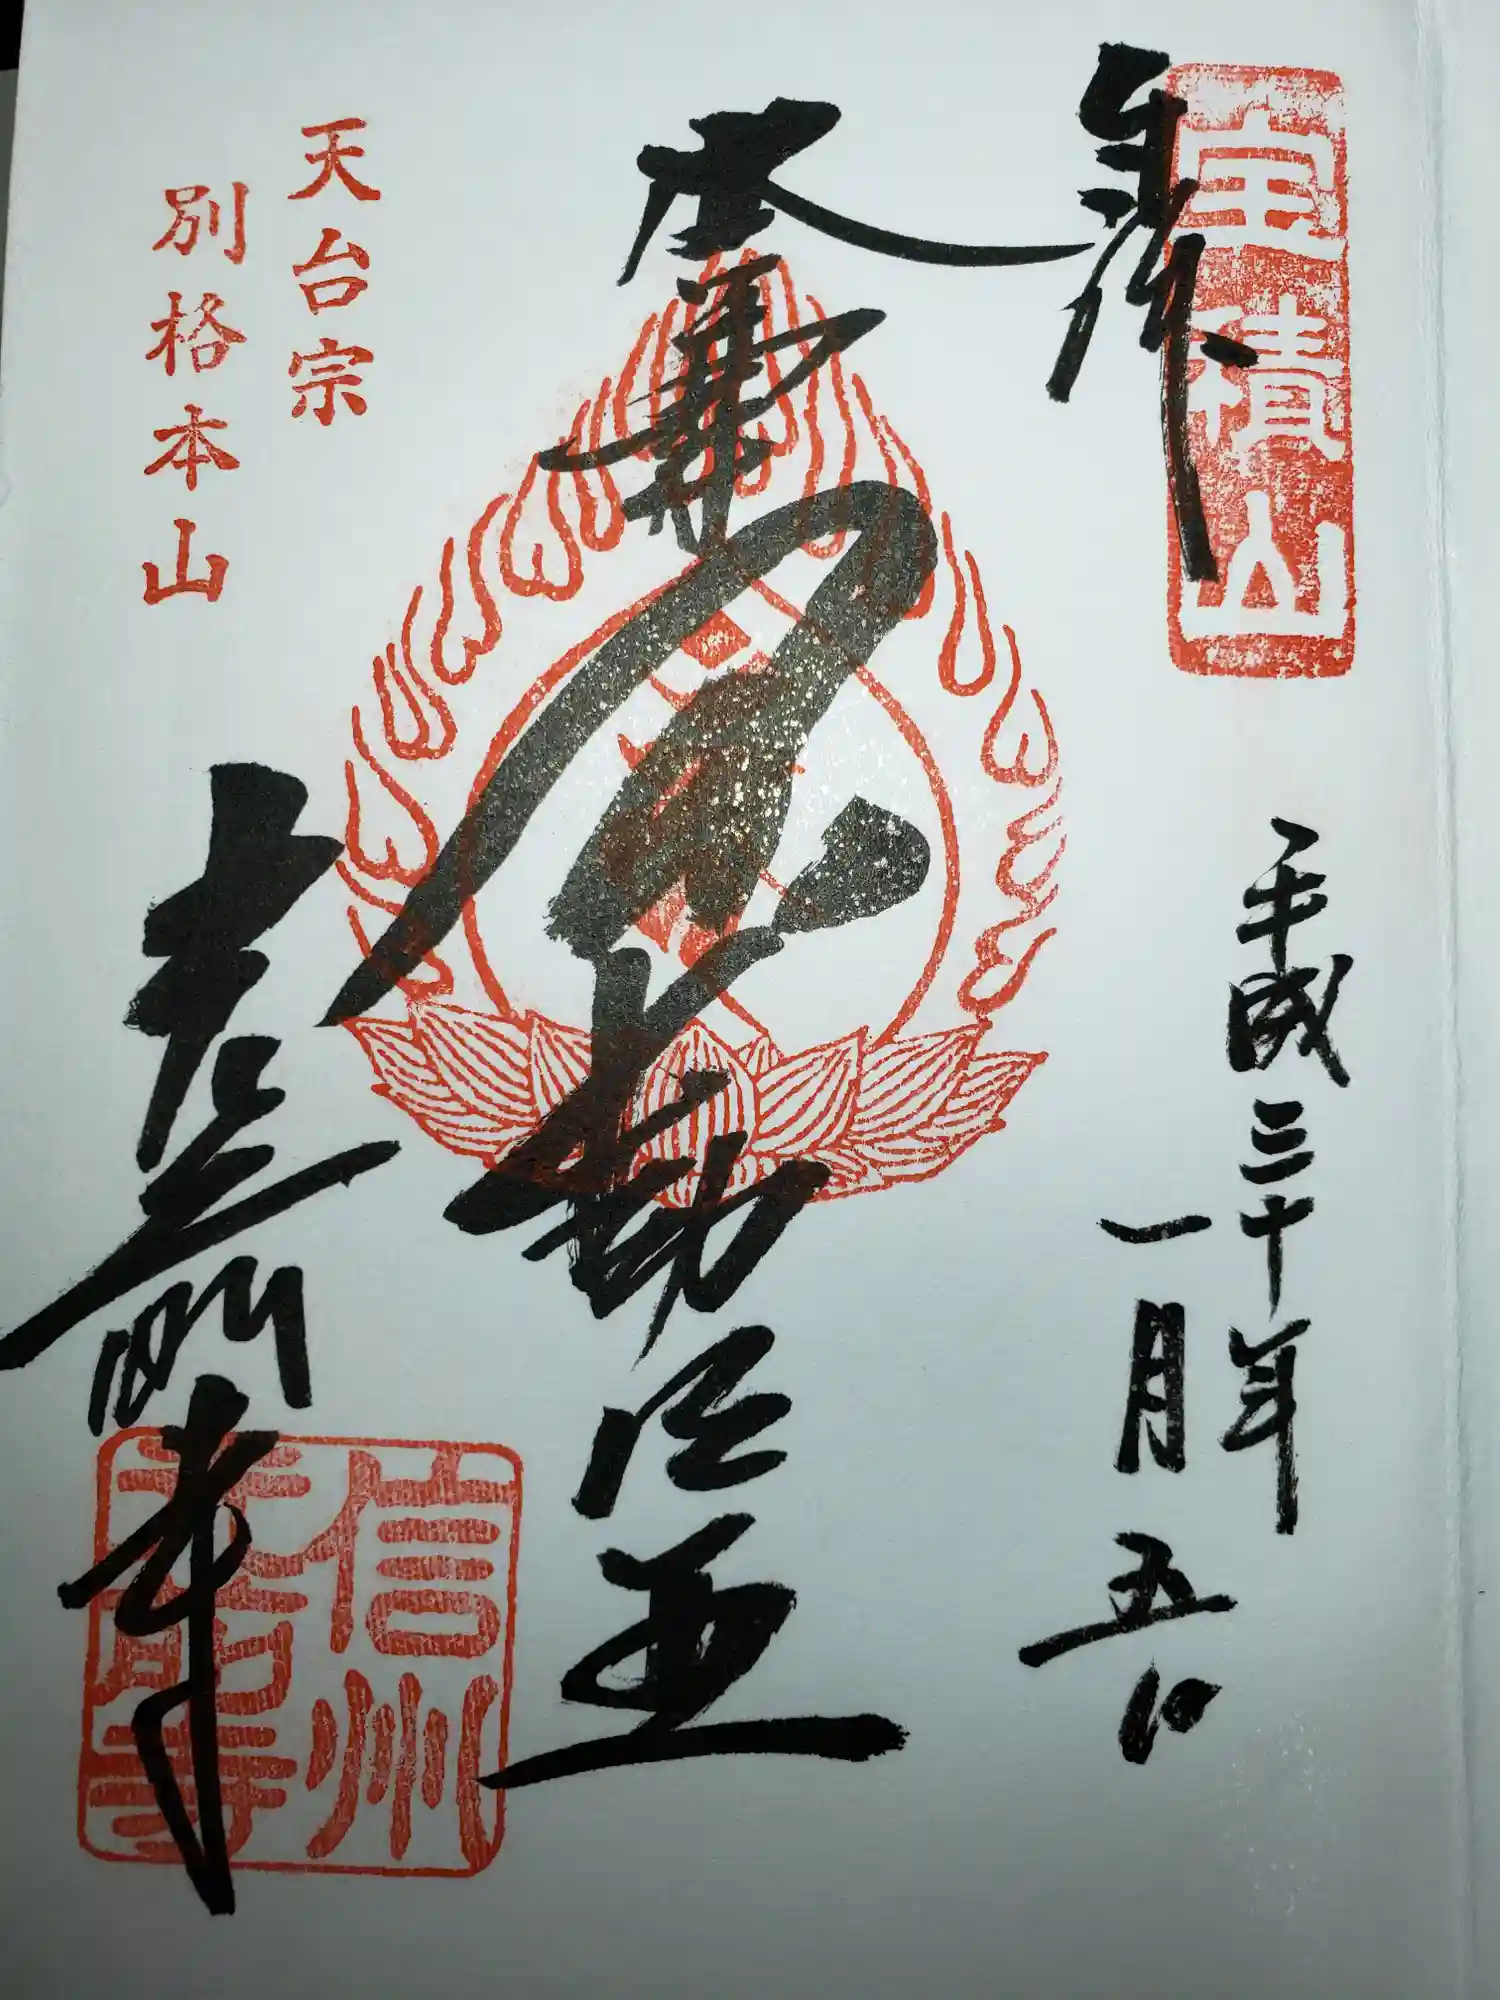 宝積山
奉拝
平成三十年
一月五日
不動明王
天台宗
別格本山
光前寺
信州
光前寺